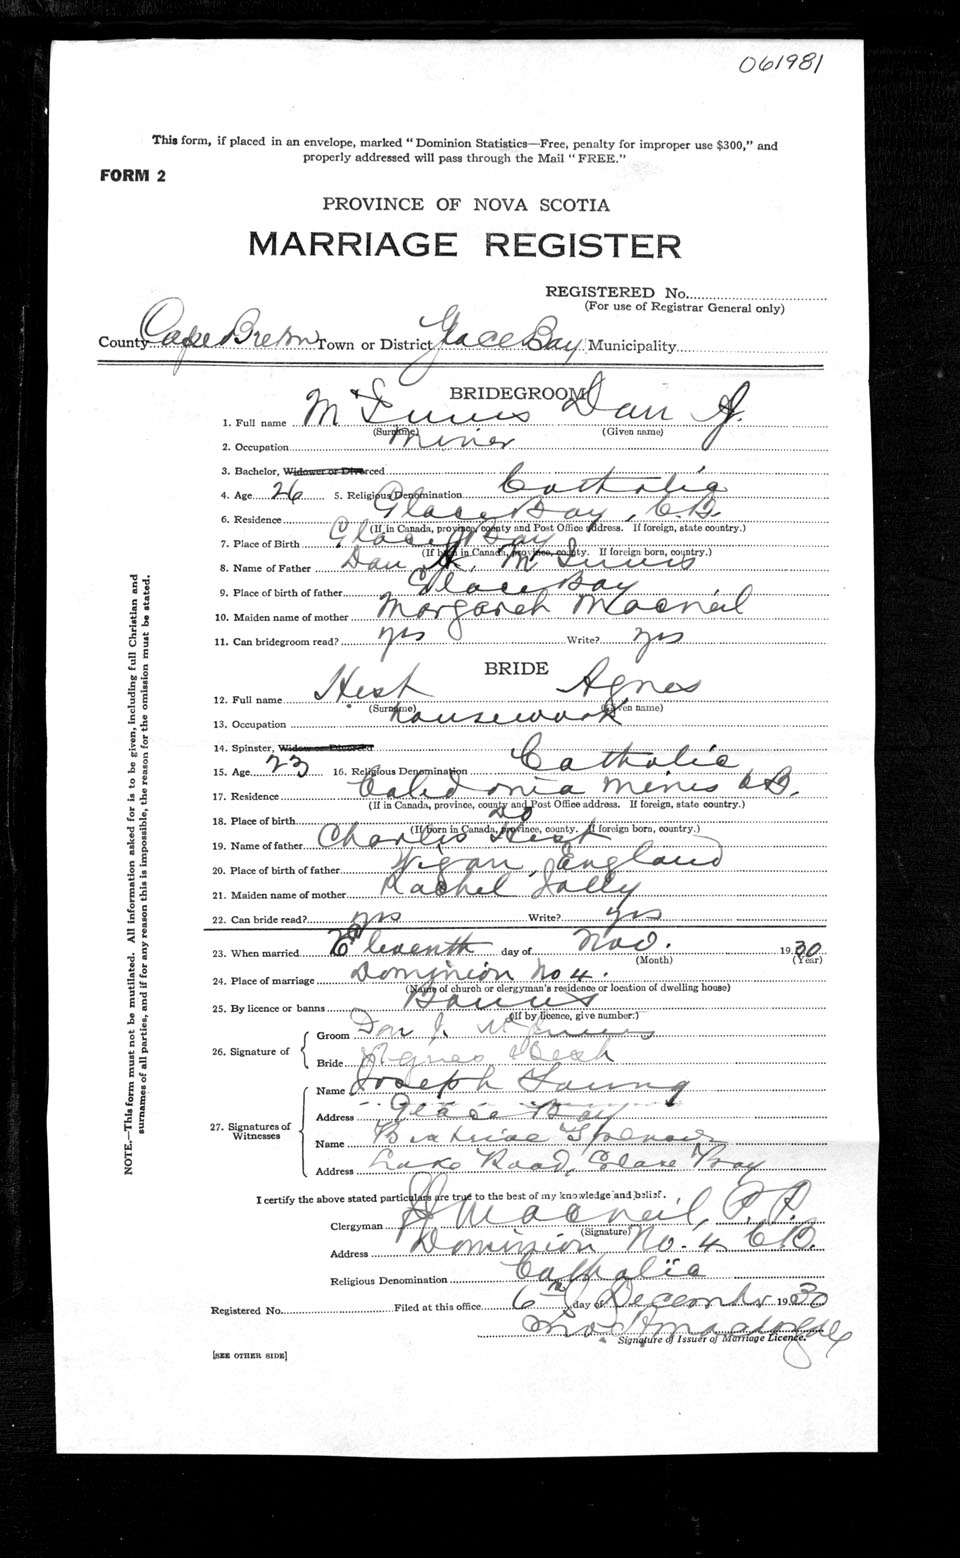 061981
This form, if placed in an envelope, marked "Dominion Statistics—Free, penalty for improper use $300," and
properly addressed will pass through the Mail "FREE."
FORM 2
PROVINCE OF NOVA SCOTIA
MARRIAGE REGISTER
REGISTERED No.
(For use of Registrar General only)
County Cape Breton Town or District Glace Bay Municipality
BRIDEGROOM
1. Full name McInnis Dan J.
(Surname) (Given name)
2. Occupation Miner
3. Bachelor, Widower or Divorced
4. Age 26 5. Religious Denomination Catholic
6. Residence Glace Bay, C.B.
(If in Canada, province, county and Post Office address. If foreign, state country.)
7. Place of Birth Glace Bay
(If born in Canada, province, county. If foreign born, country.)
8. Name of Father Dan McInnis
9. Place of birth of father Glace Bay
10. Maiden name of mother Margaret Macneil
11. Can bridegroom read? yes Write? yes
BRIDE
12. Full name Hest Agnes
(Surname) (Given name)
13. Occupation housework
14. Spinster, Widow or Divorced
15. Age 23 16. Religious Denomination Catholic
17. Residence Caledonia Mines C.B.
(If in Canada, province, county and Post Office address. If foreign, state country.)
18. Place of birth do
(If born in Canada, province, county. If foreign born, country.)
19. Name of father Charles Hest
20. Place of birth of father Wigan, England
21. Maiden name of mother Rachel Jolly
22. Can bride read? yes Write? yes
23. When married Eleventh day of Nov. 1930
(Month) (Year)
24. Place of marriage Dominion No 4.
(Name of church or clergyman's residence or location of dwelling house)
25. By licence or banns Banns
(If by licence, give number.)
26. Signature of
Groom Dan J. McInnis
Bride Agnes
27. Signatures of Witnesses
Name Joseph Young
Address Glace Bay
Name Beatrice Spencer
Address Lake Road, Glace Bay
I certify the above stated particulars are true to the best of my knowledge and belief.
Clergyman Macneil, P.P.
(Signature)
Address Dominion No. 4 C.B.
Religious Denomination Catholic
Registered No. Filed at this office 6th day of December 1930
Signature of Issuer of Marriage Licence.
[SEE OTHER SIDE]
NOTE.—This form must not be mutilated. All information asked for is to be given, including full Christian and
surnames of all parties, and if for any reason this is impossible, the reason for the omission must be stated.